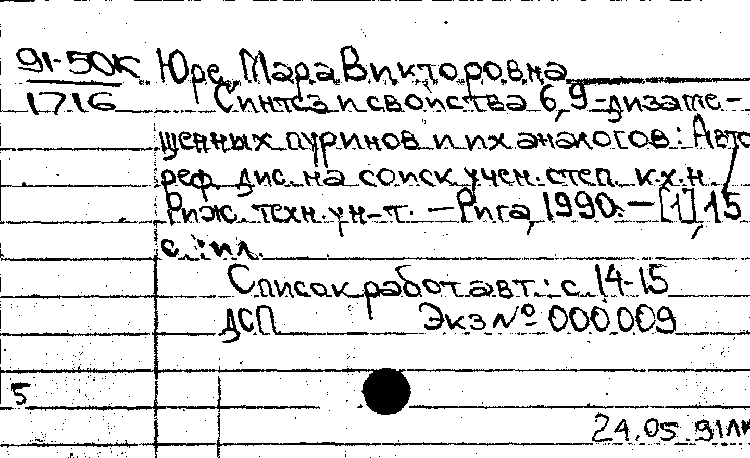 91-50к Юре, Мара Викторовна
1716 Синтез и свойства 6,9-дизаме-
щенных пуринов и их аналогов: Авто
реф. дис. на соиск. учен. степ. к.х.н. /
Риж. техн. ун-т. — Рига, 1990. — [1], 15
с.: ил.
Список работ авт.: с. 14-15
ДСП Экз № 000009
5
24.05.91лк